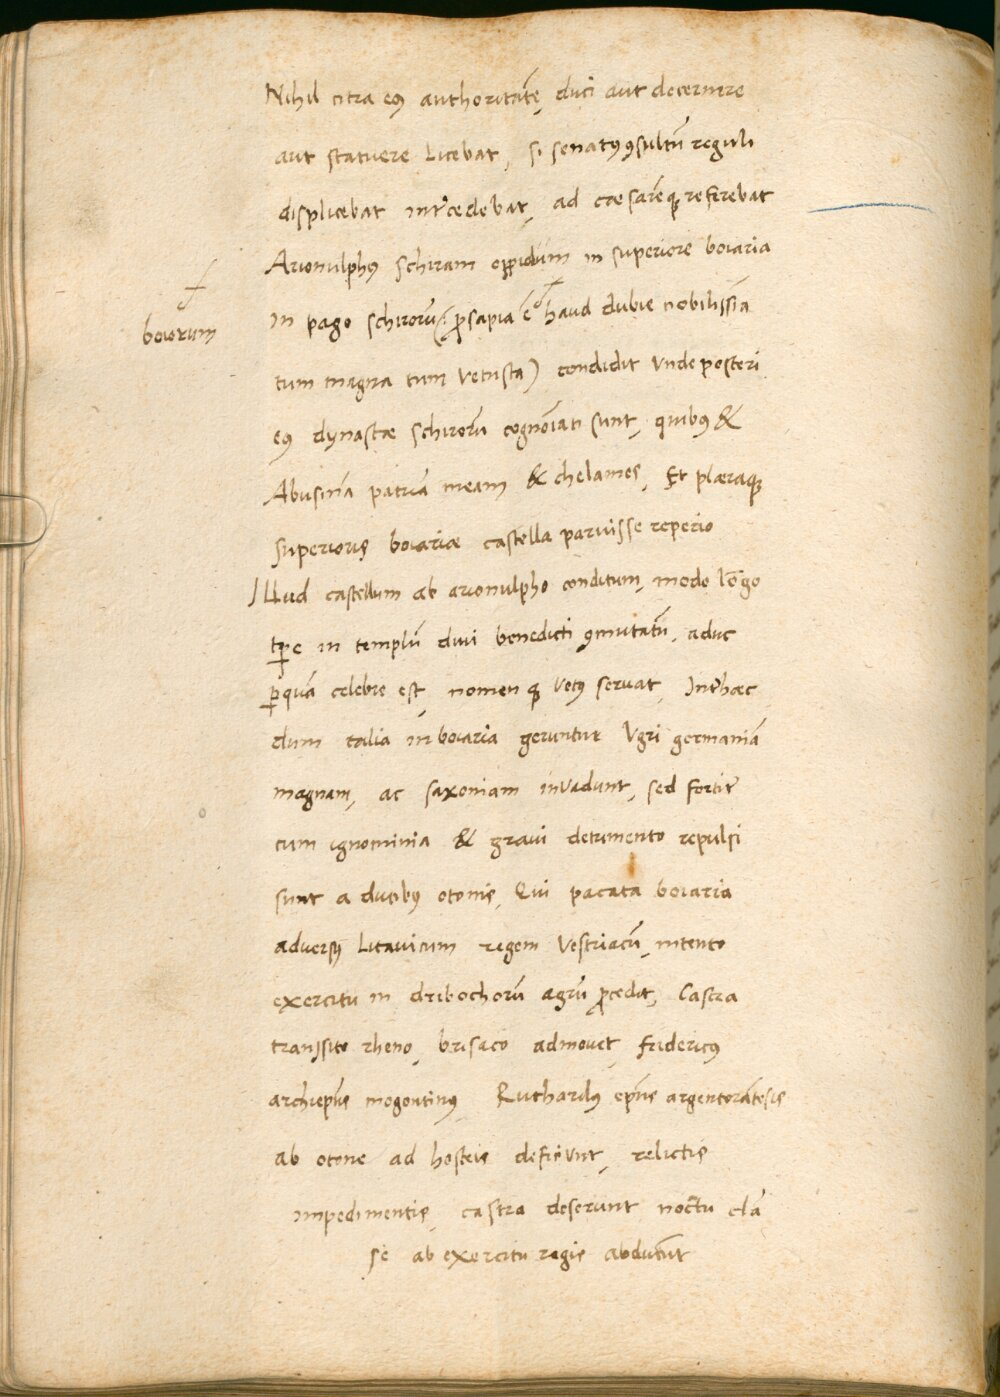 Nihil citra eꝰ authoritatē, duci aut decernere
aut statuere licebat, si senatꝰ ꝯsultū reguli
displicebat intˀcedebat, ad cæsarēqꝫ referebat
Arionulphꝰ schiram oppidum in superiore boiaria
in pago schirorū (ꝓsapia ē haud dubie nobilissīa
boiorum
tum magna tum vetusta) condidit vnde posteri
eꝰ dynastæ schirorū cognōiati sunt, quibꝰ &
Abusinā patriā meam & chelames, Et plæraqꝫ
superioris boiariæ castella paruisse reperio
Illud castellum ab arionulpho conditum, modo lōgo
tꝑe in templū diui benedicti ꝯmutatū, aduc
ꝑquā celebre est, nomen qꝫ vetꝰ seruat, Intˀhæc
dum talia in boiaria geruntur Vgri germaniā
magnam, ac saxoniam invadunt, sed fortitˀ
cum ignominia & graui detrimento repulsi
sunt a ducibꝰ otonis, Qui pacata boiaria
adversꝰ Litauicum regem Vestriacū, intento
exercitu in dribochorū agrū ꝓcedit, Castra
transito rheno, brisaco admouet, fridericꝰ
archiepūs mogontinꝰ Ruthardꝰ epūs argentorātēsis
ab otone ad hosteis deficiūnt, relictis
impedimentis, castra deserunt noctu clā
se ab exercitu regis abducūt